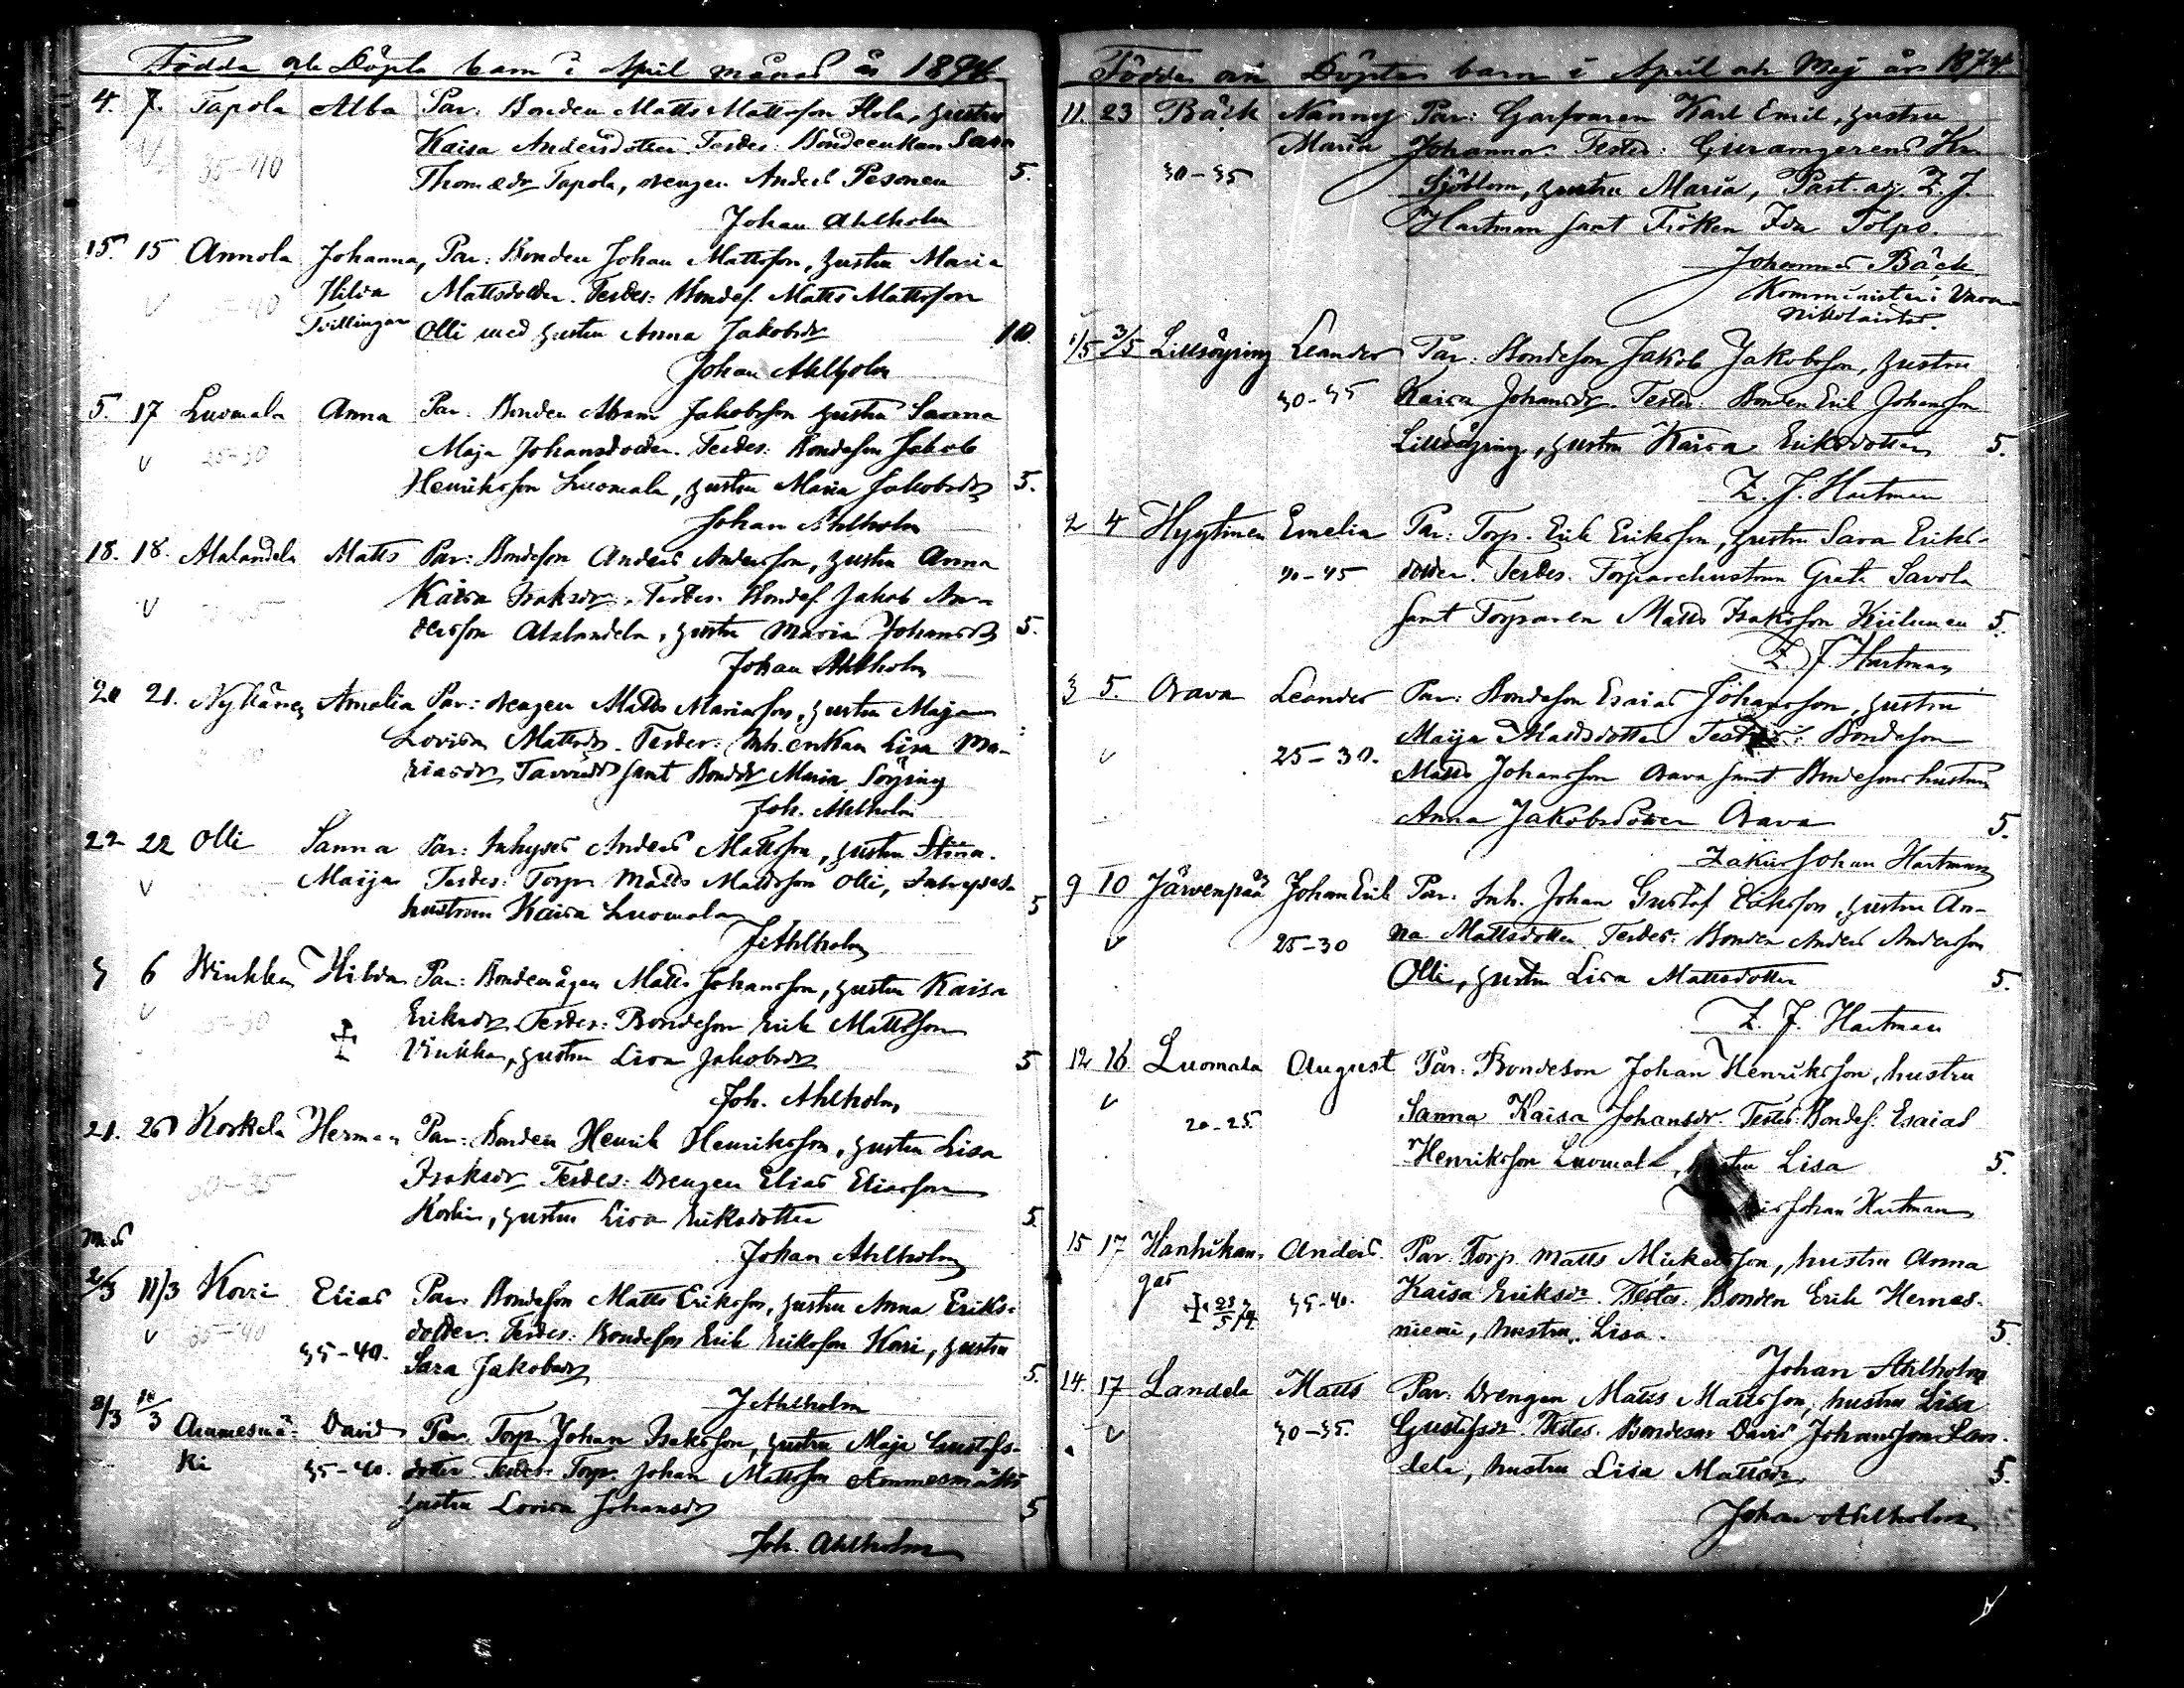 Födda och Döpta barn i April månad år 1874
4. 7. Tapola Alba Par: Bonden Matts Mattsson Hola, hustru
35-40 Kaisa Andersdotter. Testes: Bondeenkan Sara
Thomædr Tapola, drengen Anders Pesonen 5.
Johan Ahlholm
15. 15 Annola Johanna, Par: Bonden Johan Mattsson, hustru Maria
Hilda Mattsdotter. Testes: Bondes. Matts Mattsson
Tvillingar Olli med hustru Anna Jakobsdr 10
Johan Ahlholm
5. 17 Luomala Anna Par: Bonden Abram Jakobsson hustru Sanna
25-30 Maja Johansdotter. Testes: Bondeson Jakob
Henriksson Luomala, hustru Maria Jakobsdr 5.
Johan Ahlholm
18. 18. Alalandela Matts Par: Bondeson Anders Andersson, hustru Anna
Kaisa Isaksdr. Testes: Bondes. Jakob An-
dersson Alalandela, hustru Maria Johansdr 5.
Johan Ahlholm
20 21. Nykänen Amalia Par: drengen Matts Mariasson, hustru Maja
Lovisa Mattsdr. Testes: Inh.enkan Lisa Ma-
riasdr samt Bondedr Maria Söyring
Joh. Ahlholm
22 22 Olli Sanna Par: Inhyses Anders Mattsson, hustru Stina.
Maija Testes: Torp. Matts Mattsson Olli, Inhyses
hustrun Kaisa Luomala 5
J Ahlholm
5 6 Winkka Hilda Par: Bondemågen Matts Johansson, hustru Kaisa
Eriksdr Testes: Bondeson Erik Mattsson
Vinkka, hustru Lisa Jakobsdr 5
Joh. Ahlholm
21. 26 Korkela Herman Par: Bonden Henrik Henriksson, hustru Lisa
30-35 Isaksdr Testes: Drengen Elias Eliasson
Koski, hustru Lisa Eriksdotter 5.
Johan Ahlholm
2/3 11/3 Korri Elias Par: Bondeson Matts Eriksson, hustru Anna Eriks-
35-40 dotter. Testes: Bondeson Erik Eriksson Korri, hustru
35-40. Sara Jakobsdr 5.
J Ahlholm
8/3 10/3 Ammesmä- David Par: Torp. Johan Isaksson, hustru Maja Gustafs-
ki 35-40. dotter Testes: Torp. Johan Mattsson Ammesmäki
hustru Lovisa Johansdr 5
Joh. Ahlholm
Födde och Döpte barn i April och Maj års 1874.
11. 23 Bäck Nanny Par: Garfvaren Karl Emil, hustru
Maria Johanna. Testes:
30-35 Sjöblom, hustru Maria, Past. adj. Z. J.
Hartman samt Fröken Ida Tolpo.
Johannes Bäck
Komminister i
Nikolaistad.
1/5 3/5 Lillsöyring Leander Par: Bondeson Jakob Jakobsson, hustru
30-35 Kaisa Johansdr. Testes: Bonden Erik Johansson
Lillsöyring, hustru Kaisa Eriksdotter 5.
Z. J. Hartman
2 4 Hyytinen Emelia Par: Torp. Erik Eriksson, hustru Sara Eriks-
40-45 dotter. Testes: Torparehustrun Greta Savola
samt Torparen Matts Isaksson Kiilunen 5.
Z. J. Hartman
3 5. Orava Leander Par: Bondeson Esaias Johansson, hustru
Maija Mattsdotter Testes: Bondeson
25-30. Matts Johansson Orava samt Bondesons hustru
Anna Jakobsdotter Orava 5.
Zakris Johan Hartman
9 10 Järvenpää Johan Erik Par: Inh. Johan Gustaf Eriksson, hustru An-
25-30 na Mattsdotter Testes: Bonden Anders Andersson
Olli, hustru Lisa Mattsdotter 5.
Z. J. Hartman
12 16 Luomala August Par: Bondeson Johan Henriksson, hustru
20-25 Sanna Kaisa Johansdr. Testes: Bondes. Esaias
Henriksson Luomala, hustru Lisa 5.
Johan Hartman
15 17 Hanhikan- Anders. Par: Torp. Matts Mickelsson, hustru Anna
gas 35-40. Kaisa Eriksdr. Testes: Bonden Erik Hernes-
niemi, hustru Lisa. 5
Johan Ahlholm
14. 17 Landela Matts Par: Drengen Matts Mattsson, hustru Lisa
30-35. Gustafsdr. Testes: Bondeson David Johansson Lan-
dela, hustru Lisa Mattsdr 5.
Johan Ahlholm